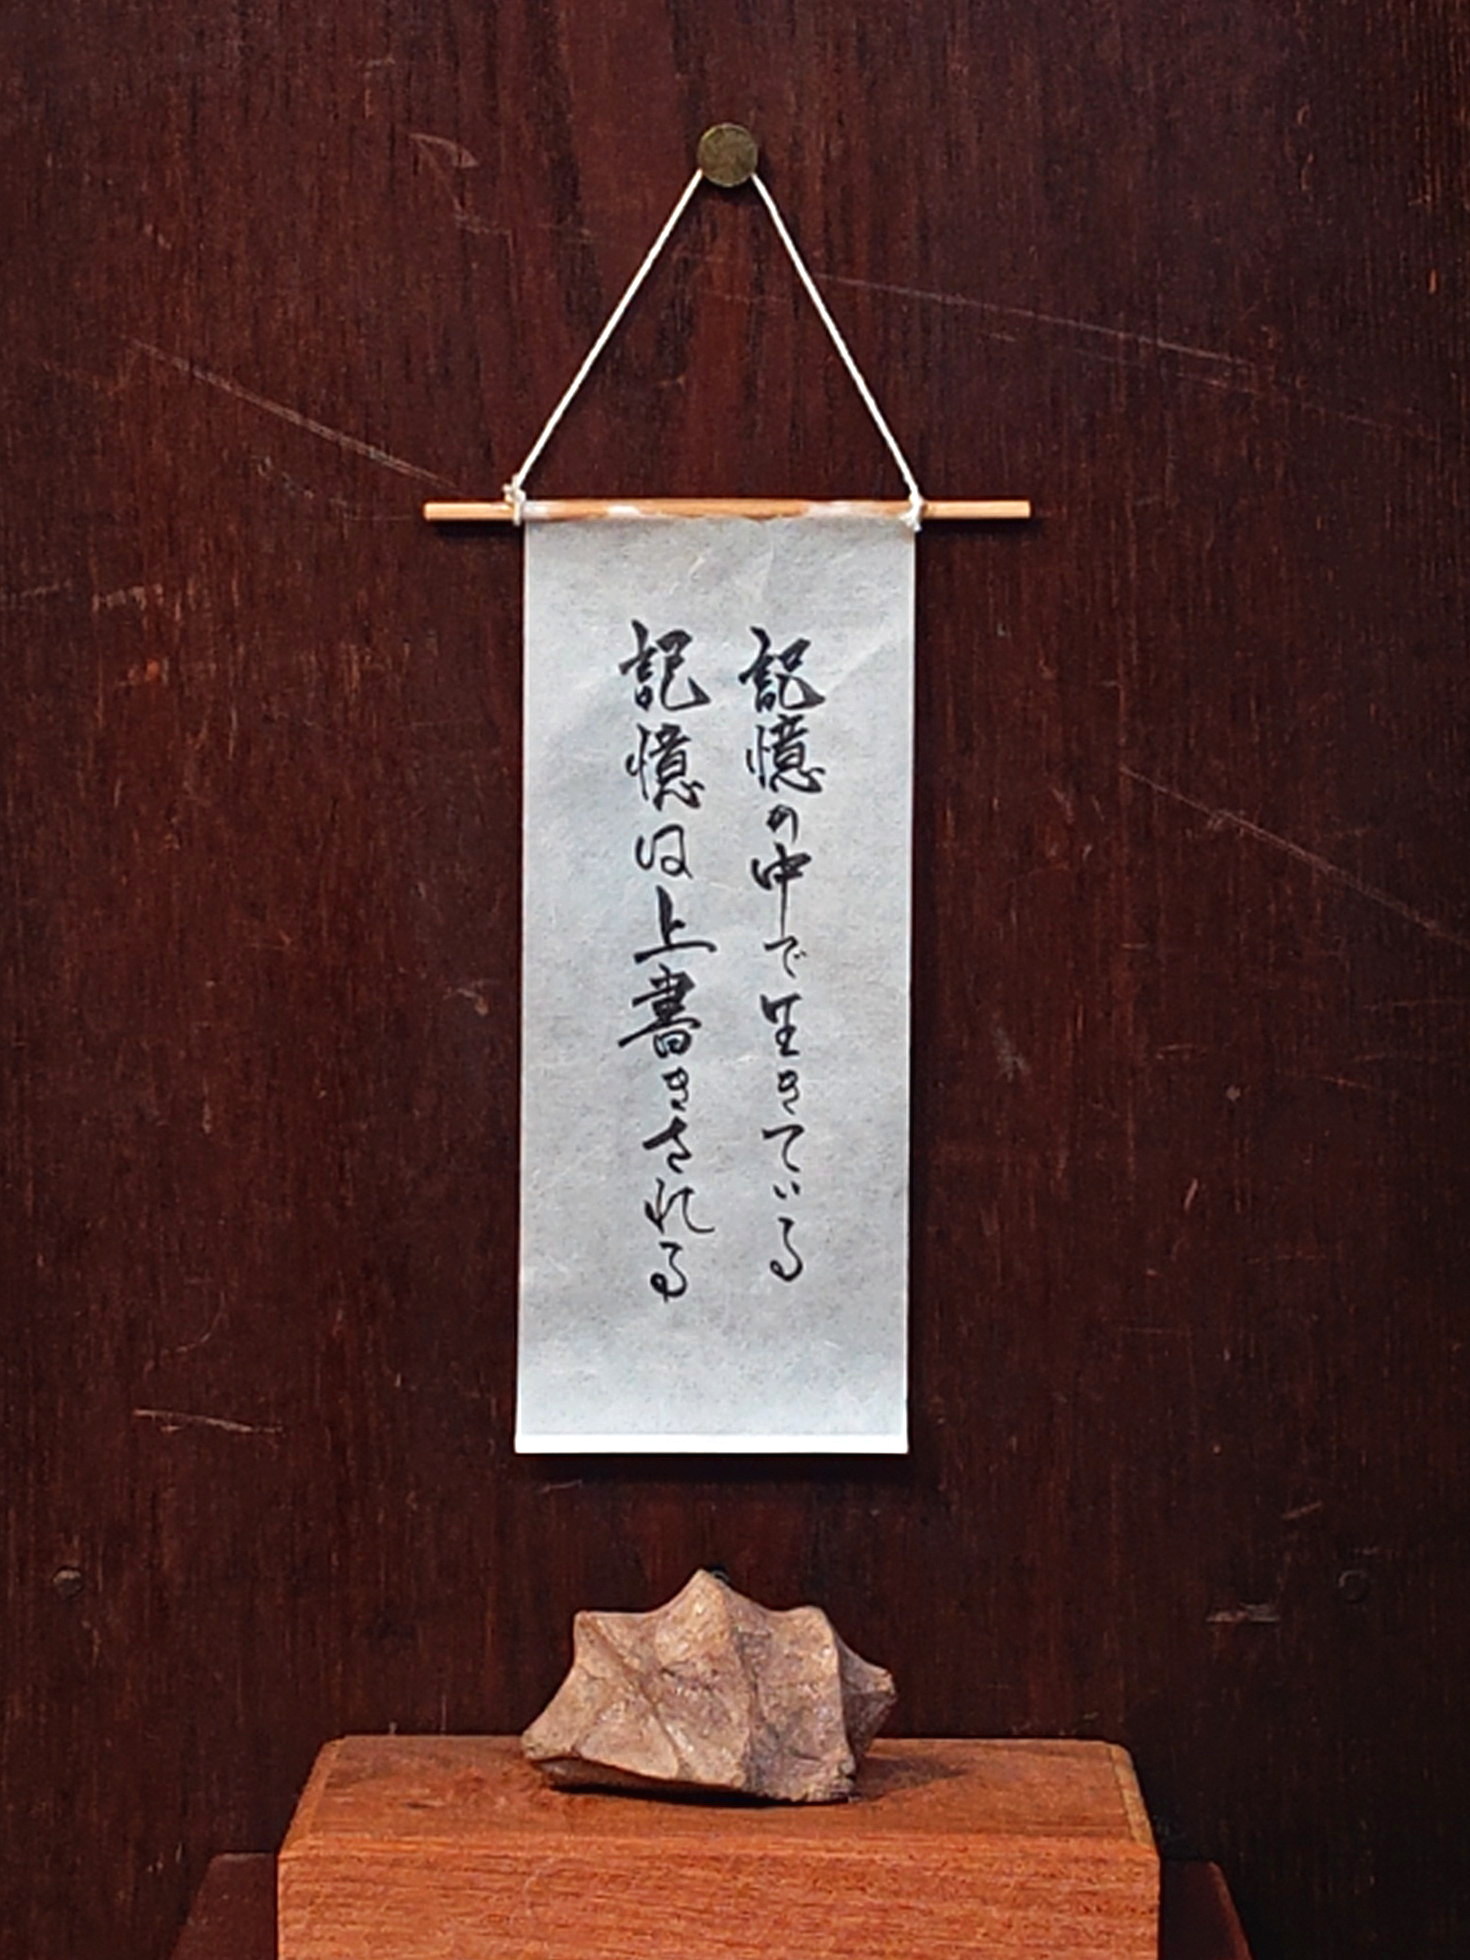 記憶の中で生きている
記憶は上書きされる